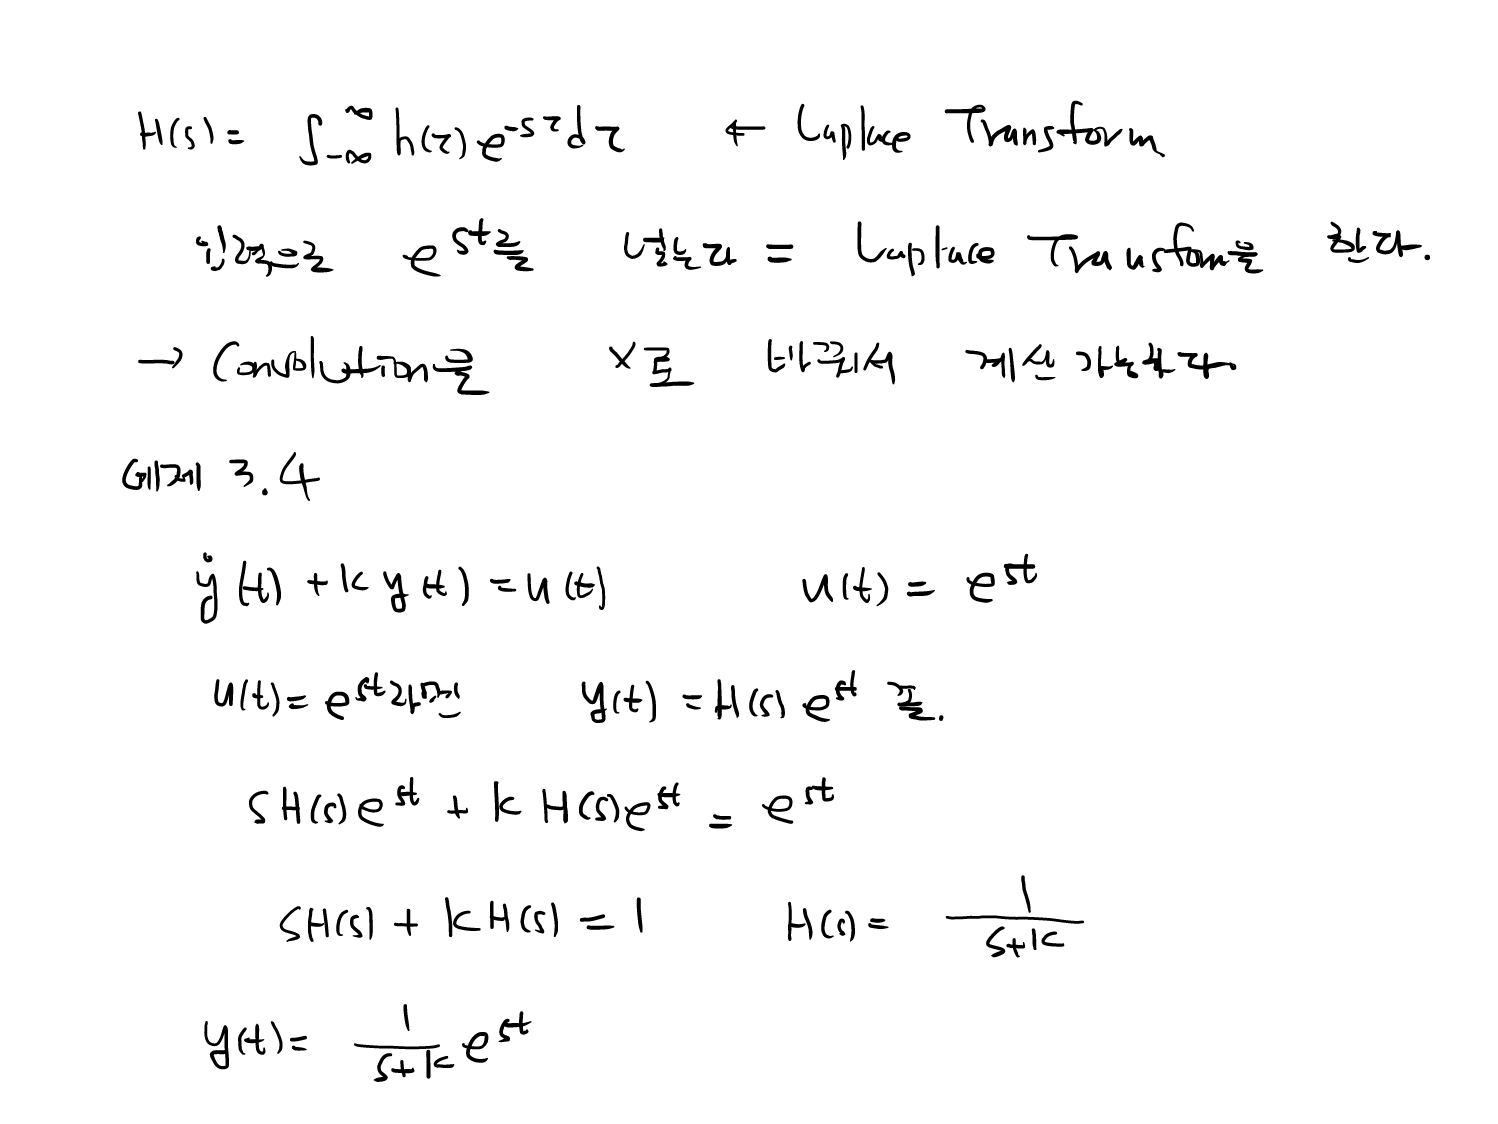 H(s) = ∫_{-∞}^{∞} h(τ) e^{-sτ} dτ ← Laplace Transform
입력으로 e^{st}를 넣는다 = Laplace Transform을 한다.
→ Convolution을 ×로 바꿔서 계산 가능하다.
예제 3.4
ẏ(t) + k y(t) = u(t) u(t) = e^{st}
u(t) = e^{st}라면 y(t) = H(s) e^{st} 꼴.
sH(s)e^{st} + k H(s)e^{st} = e^{st}
sH(s) + kH(s) = 1 H(s) = \frac{1}{s+k}
y(t) = \frac{1}{s+k} e^{st}